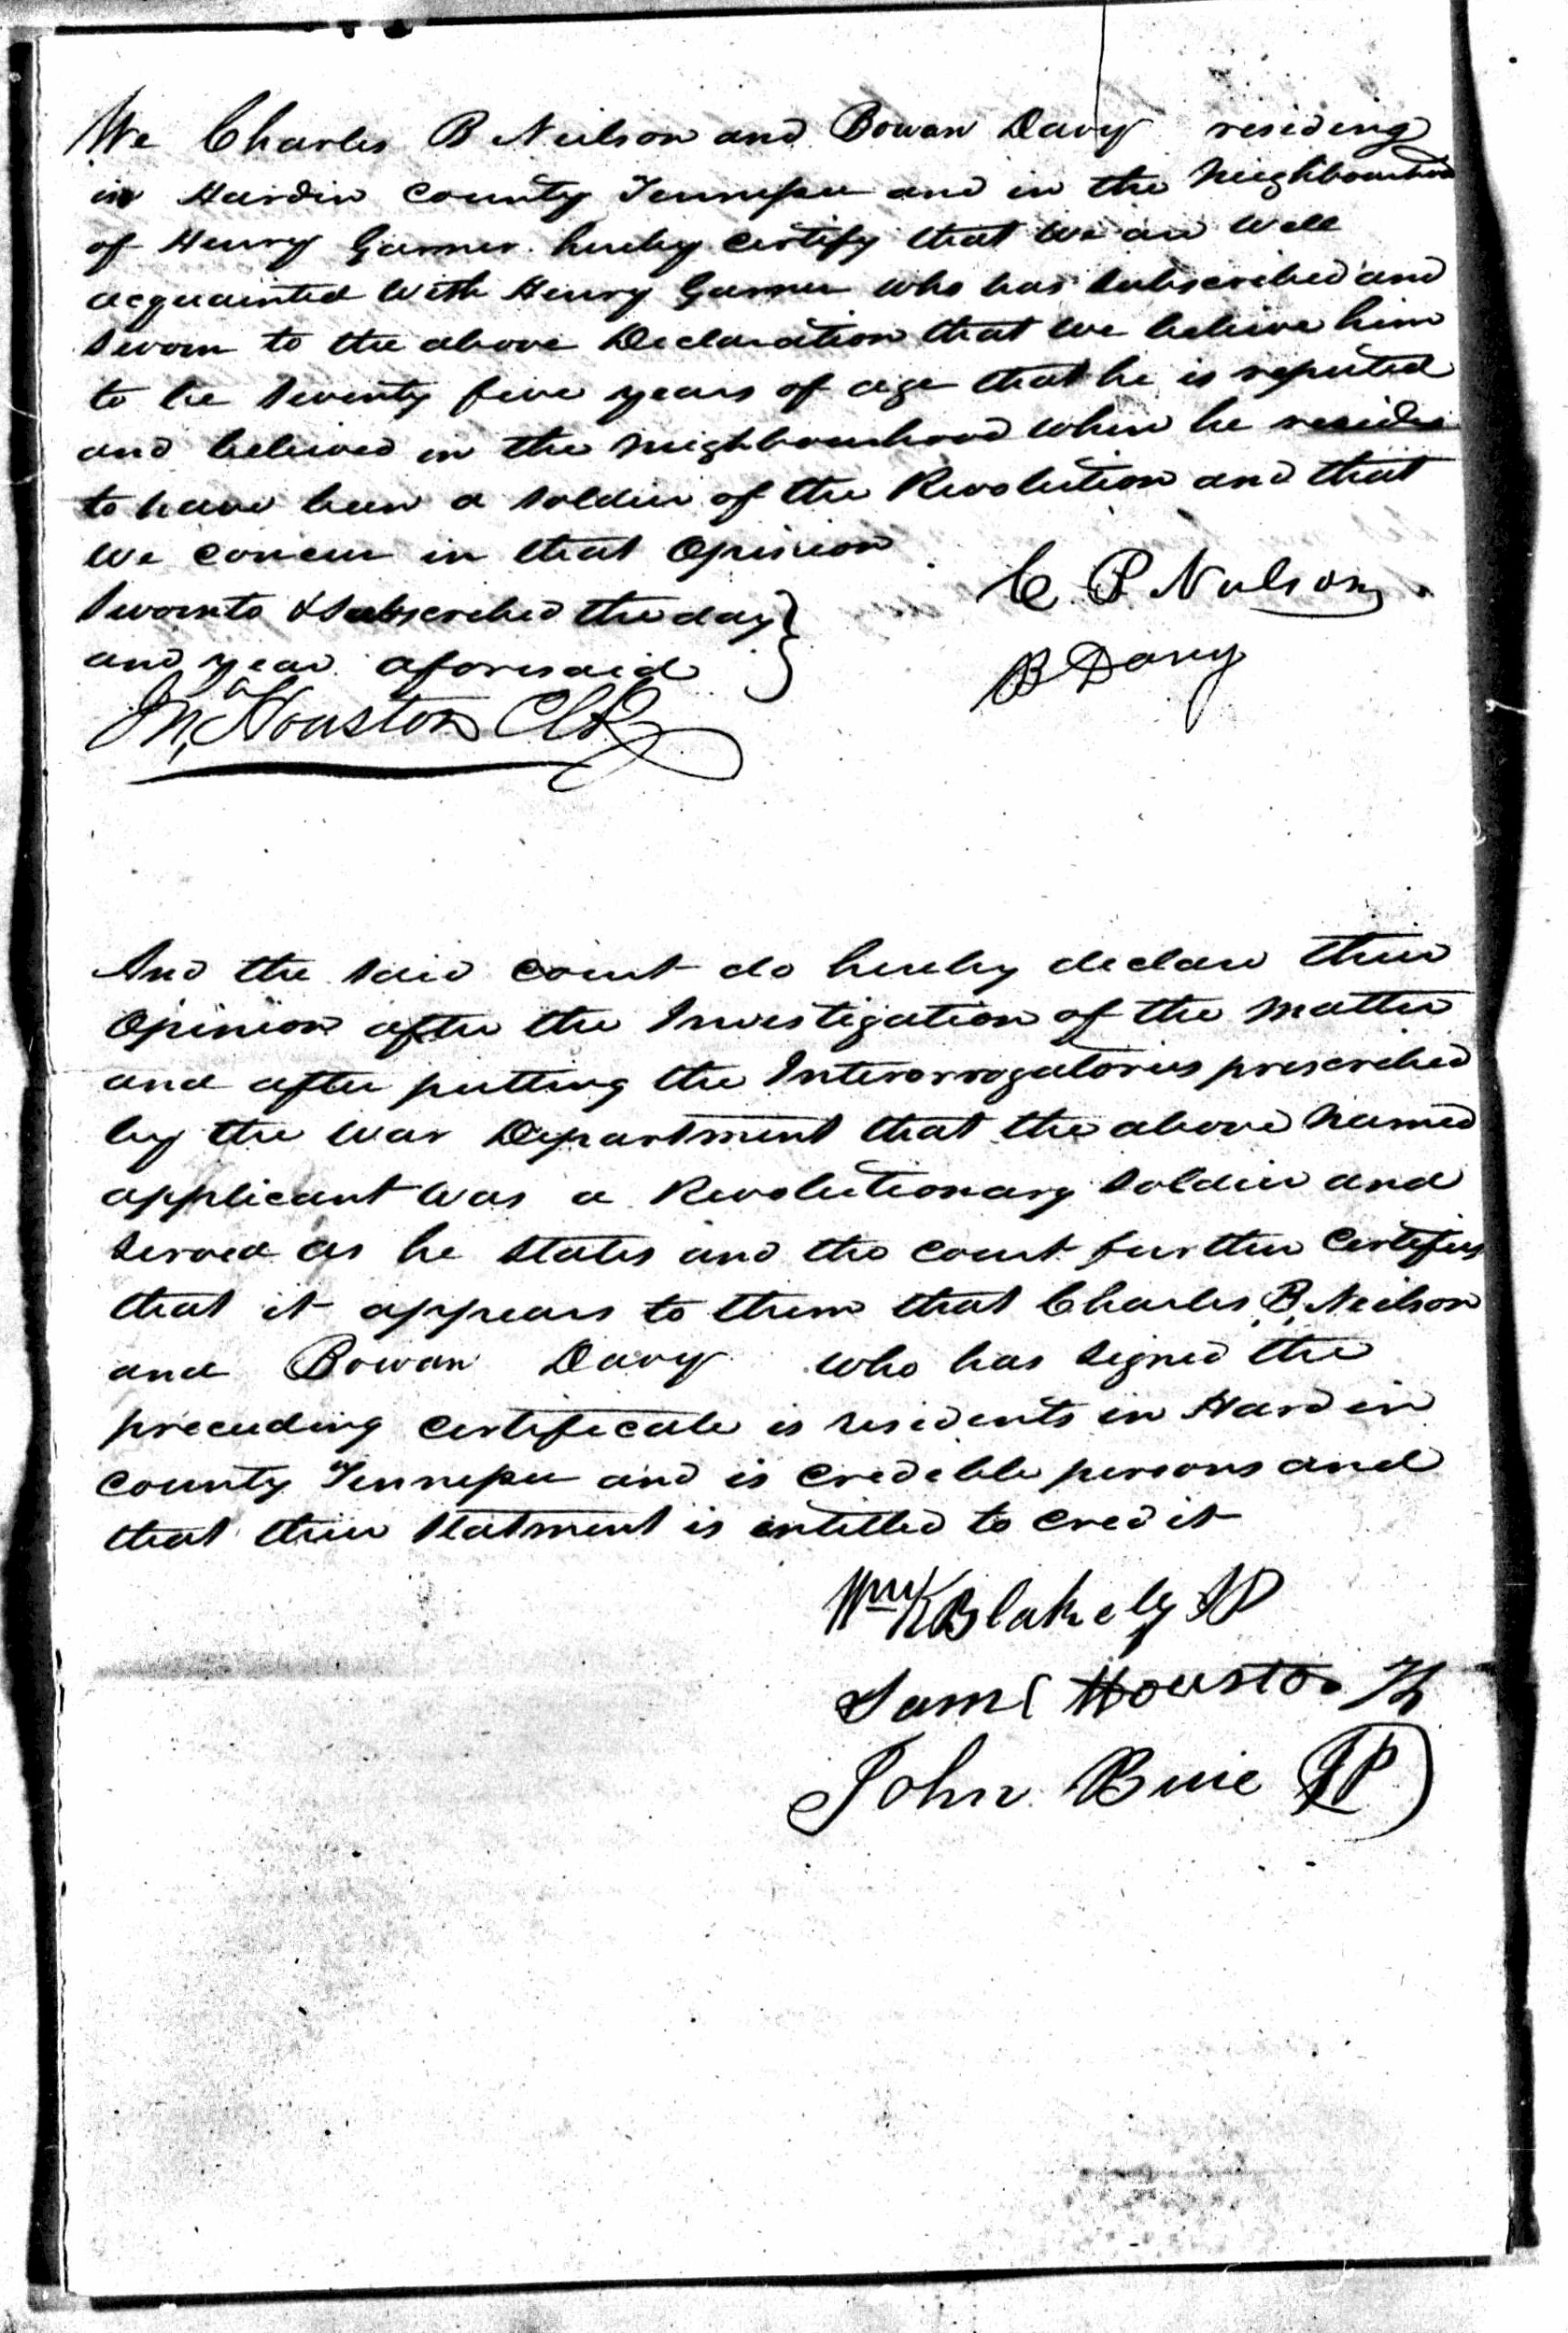 We Charles B Neilson and Bowan Davy residing
in Hardin County Tennessee and in the Neighbourhood
of Henry Garner hereby Certify that we are well
acquainted with Henry Garner who has subscribed and
sworn to the above Declaration that we believe him
to be seventy five years of age that he is reputed
and believed in the Neighbourhood where he resides
to have been a soldier of the Revolution and that
we concur in that Opinion
C P Nelson
Sworn to & subscribed the day
and year aforesaid
B Davy
Houston Clk
And the said court do hereby declare their
Opinion after the Investigation of the Matter
and after putting the Interorrogatories prescribed
by the War Department that the above Named
applicant was a Revolutionary soldier and
served as he states and the court further Certifies
that it appears to them that Charles B. Neilson
and Bowan Davy who has signed the
preceeding certificate is residents in Hardin
County Tennessee and is credeble persons and
that their statment is entitled to credit
Wm K Blakely JP
Saml Houston
John Buie JP